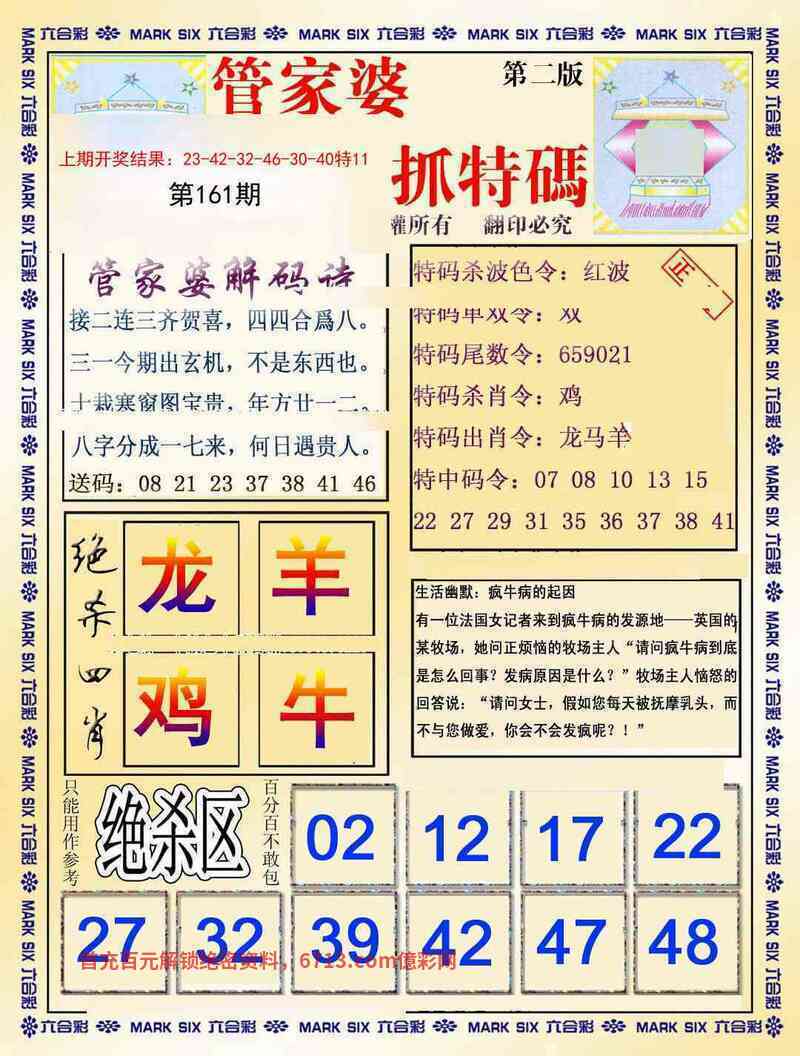 MARK SIX 六合彩 MARK SIX 六合彩 MARK SIX 六合彩 MARK SIX 六合彩
管家婆
第二版
上期开奖结果：23-42-32-46-30-40特11
第161期
抓特碼
所有 翻印必究
管家婆解码诗
接二连三齐贺喜，四四合爲八。
三一今期出玄机，不是东西也。
十裁寒窗图宝贵，年方廿一二。
八字分成一七来，何日遇贵人。
送码：08 21 23 37 38 41 46
特码杀波色令：红波
正
特码单双令：双
特码尾数令：659021
特码杀肖令：鸡
特码出肖令：龙马羊
特中码令：07 08 10 13 15
22 27 29 31 35 36 37 38 41
绝杀四肖
龙 羊
鸡 牛
生活幽默：疯牛病的起因
有一位法国女记者来到疯牛病的发源地——英国的
某牧场，她问正烦恼的牧场主人“请问疯牛病到底
是怎么回事？发病原因是什么？”牧场主人恼怒的
回答说：“请问女士，假如您每天被抚摩乳头，而
不与您做爱，你会不会发疯呢？！”
只能用作参考
绝杀区
百分百不敢包
02 12 17 22
27 32 39 42 47 48
首充百元解锁绝密资料，6713.com億彩网
MARK SIX 六合彩 MARK SIX 六合彩 MARK SIX 六合彩 MARK SIX 六合彩